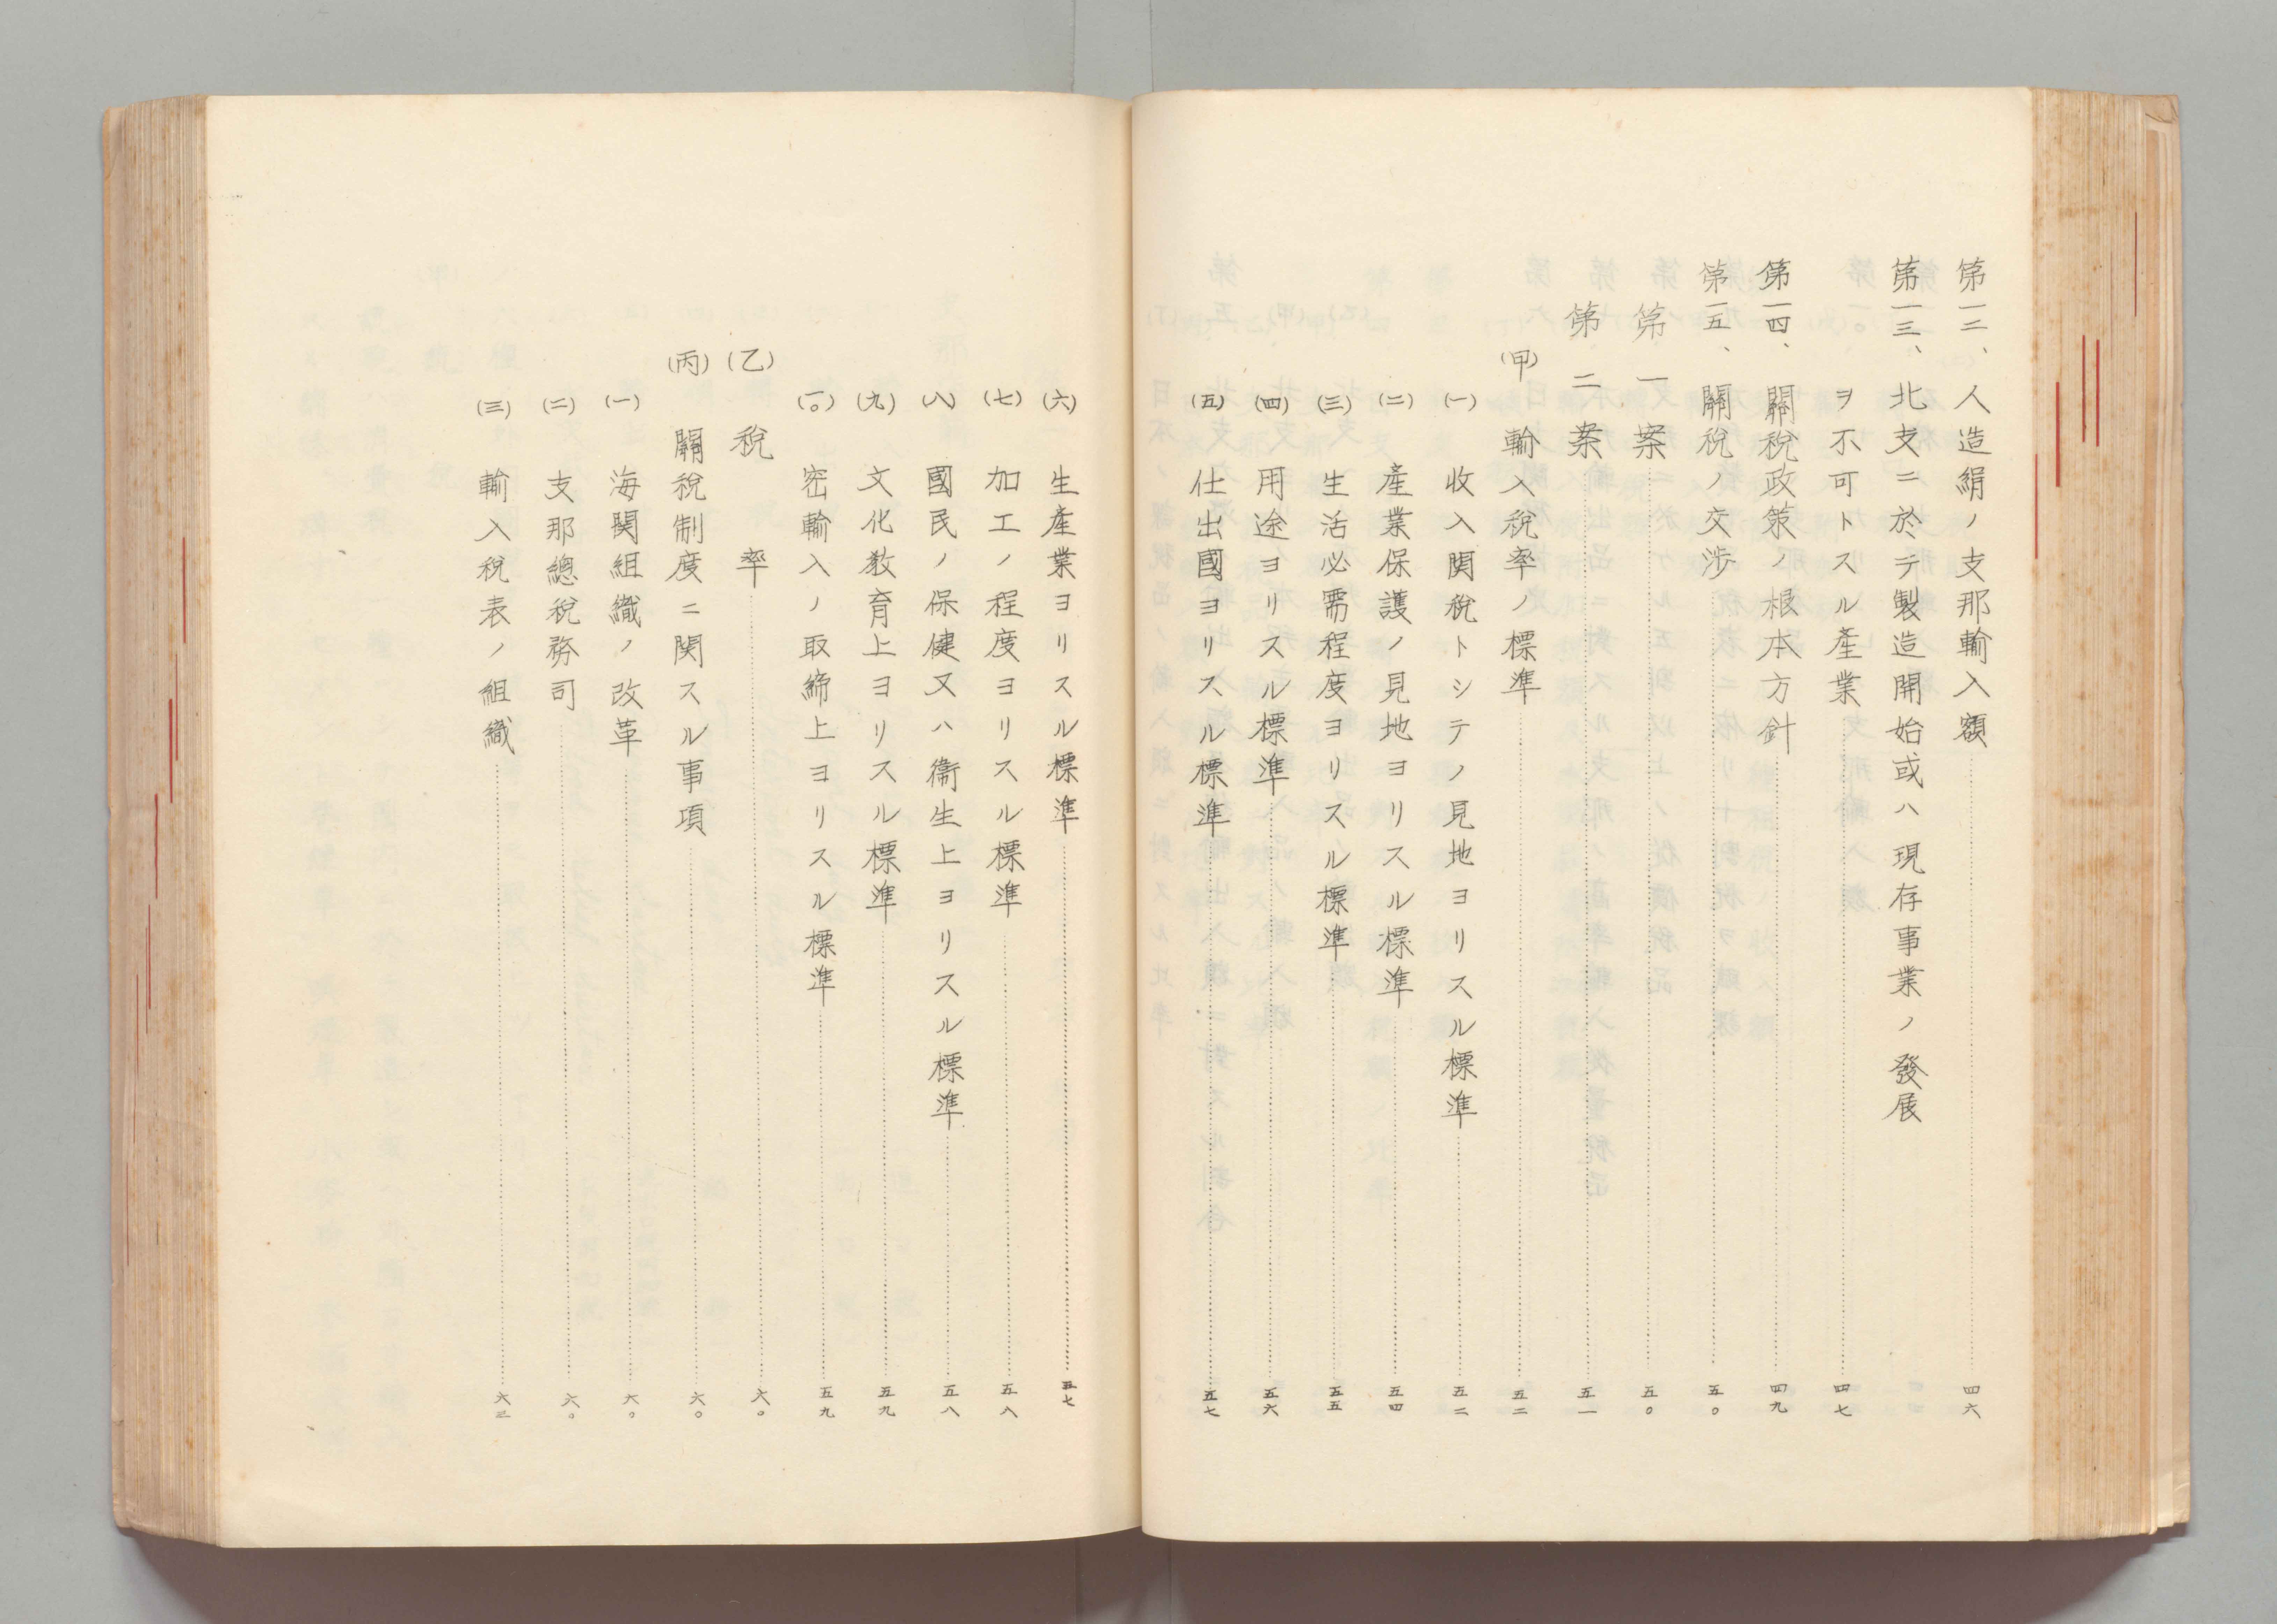 第一二、人造絹ノ支那輸入額…………四六
第一三、北支ニ於テ製造開始或ハ現存事業ノ發展
ヲ不可トスル產業…………四七
第一四、關稅政策ノ根本方針…………四九
第一五、關稅ノ交涉…………五〇
第一案…………五〇
第二案…………五一
(甲)輸入稅率ノ標準…………五二
(一)收入関稅トシテノ見地ヨリスル標準…………五二
(二)產業保護ノ見地ヨリスル標準…………五四
(三)生活必需程度ヨリスル標準…………五五
(四)用途ヨリスル標準…………五六
(五)仕出國ヨリスル標準…………五七
(六)生產業ヨリスル標準…………五七
(七)加工ノ程度ヨリスル標準…………五八
(八)國民ノ保健又ハ衞生上ヨリスル標準…………五八
(九)文化敎育上ヨリスル標準…………五九
(一〇)密輸入ノ取締上ヨリスル標準…………五九
(乙)稅率…………六〇
(丙)關稅制度ニ関スル事項…………六〇
(一)海関組織ノ改革…………六〇
(二)支那總稅務司…………六〇
(三)輸入稅表ノ組織…………六二